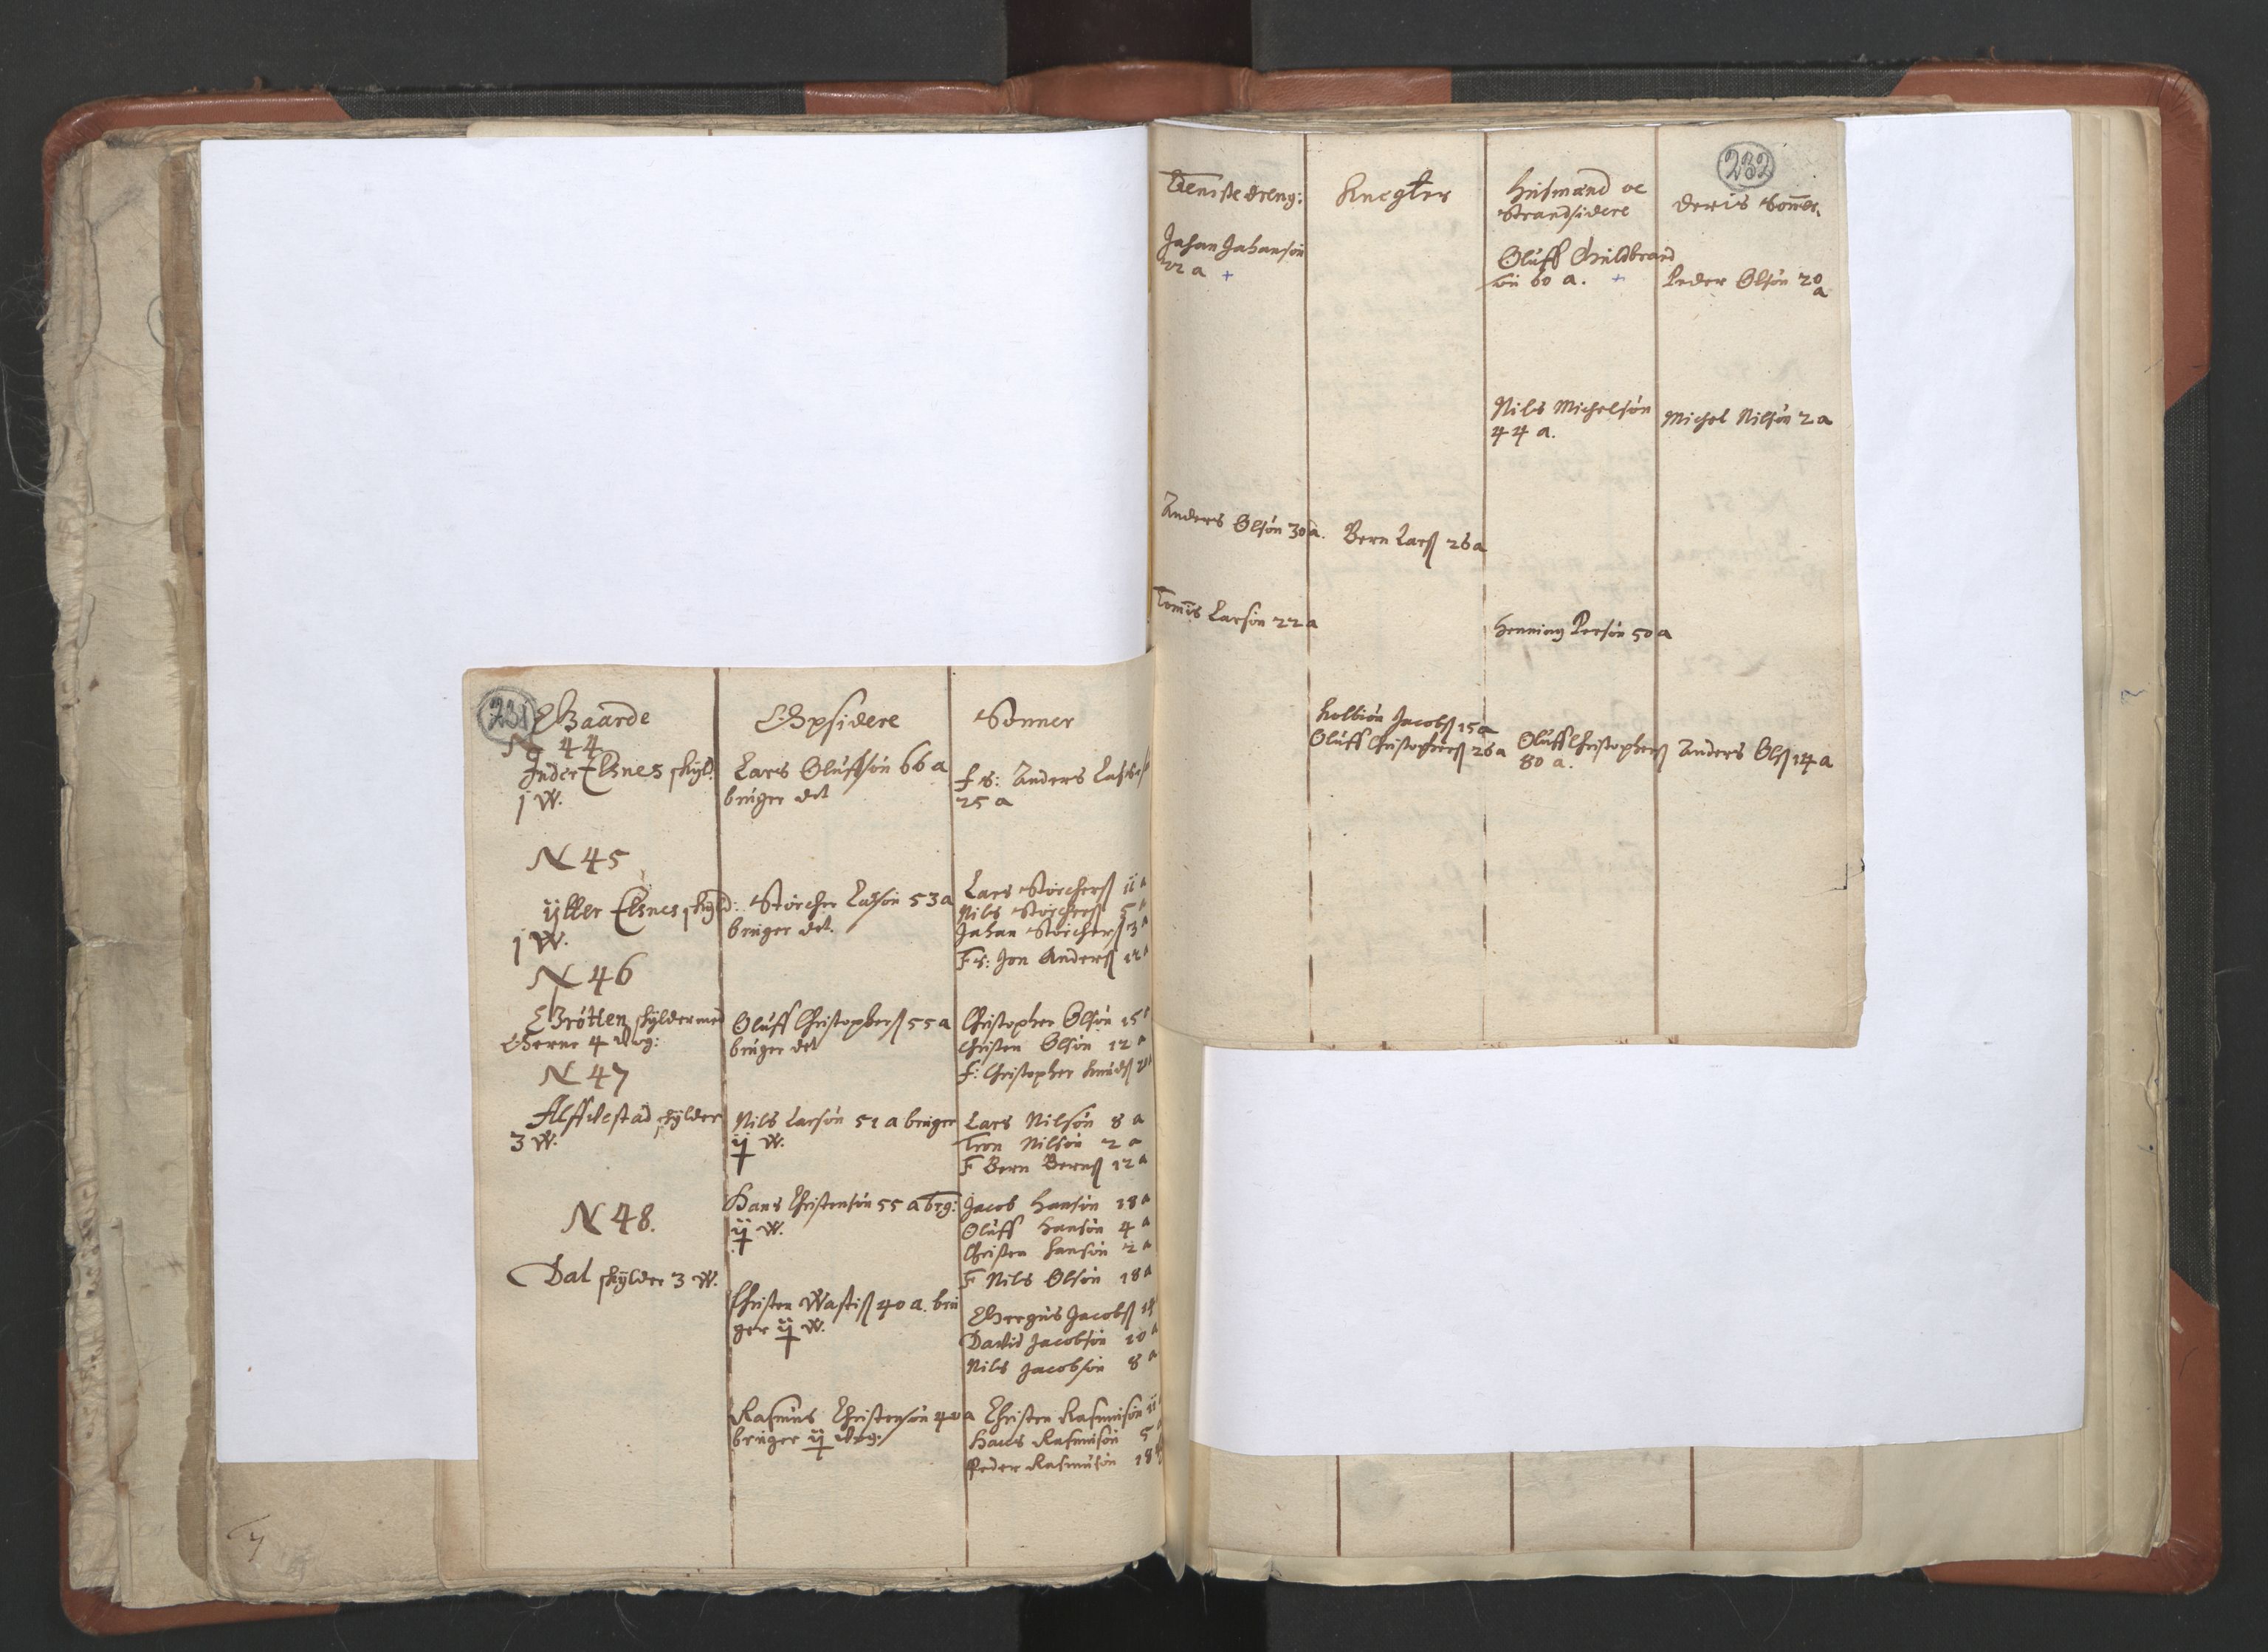 231
Gaarde
N 44
Inder Elsnes skyld:
j W.
N 45
ÿtter Elsnes skyld:
j W.
N 46
Grötten skylder med
Gerne 4 Wog:
N 47
Alffvestad skylder
3 W.
N 48.
Dal skylder 3 W.
Opsidere
Lars Oluffsön 66 a
brüger det
Störcher Larsön 53 a
brüger det.
Oluff Christophersß 55 a
brüger det
Nils Larsön 51 a brüger
ij W.
Hans Christensön 55 a brg:
ij W.
Christen Wastisß 40 a. brü
ger ij W.
Rasmus Christensön 40 a
brüger ij Wog:
Sönner
f s: Anders
25 a
Lars Störchersß ii a
Nils Störchersß 5 a
Jahan Störchersß 3 a
F s: Jon Andersß 12 a
Christopher Olsön 15
Christen Olsön 12 a
f: Christopher Knüdsß
Lars Nilsön 8 a
Tron Nilsön 2 a
F Bern Bernsß 12 a
Jacob Hansön 18 a
Oluff Hansön 4 a
Christen Hansön 2 a
F Nils Olsön 18 a
Gregüs Jacobsß 14
David Jacobsön 10 a
Nils Jacobsön 8 a
Christen Rasmüsön ii
Hans Rasmüsön 5
Peder Rasmüsön 18
232
Tieniste dreng:
Jahan Jahansön
22 a +
Anders Olsön 30 a.
Tomis Larsön 22 a
Knegter
Bern Larsß 26 a
Kolbiön Jacobsß 15 a
Oluff Christophersß 26 a
Hüsmænd oc
Strandsidere
Oluff Hildbrand
sön 60 a. +
Nils Michelsön
44 a.
Henning Persön 50 a
Oluff Christophersß
80 a.
Deris Sönner.
Peder Olsön 20
a
Michel Nilsön 2 a
Anders Olsß 14 a